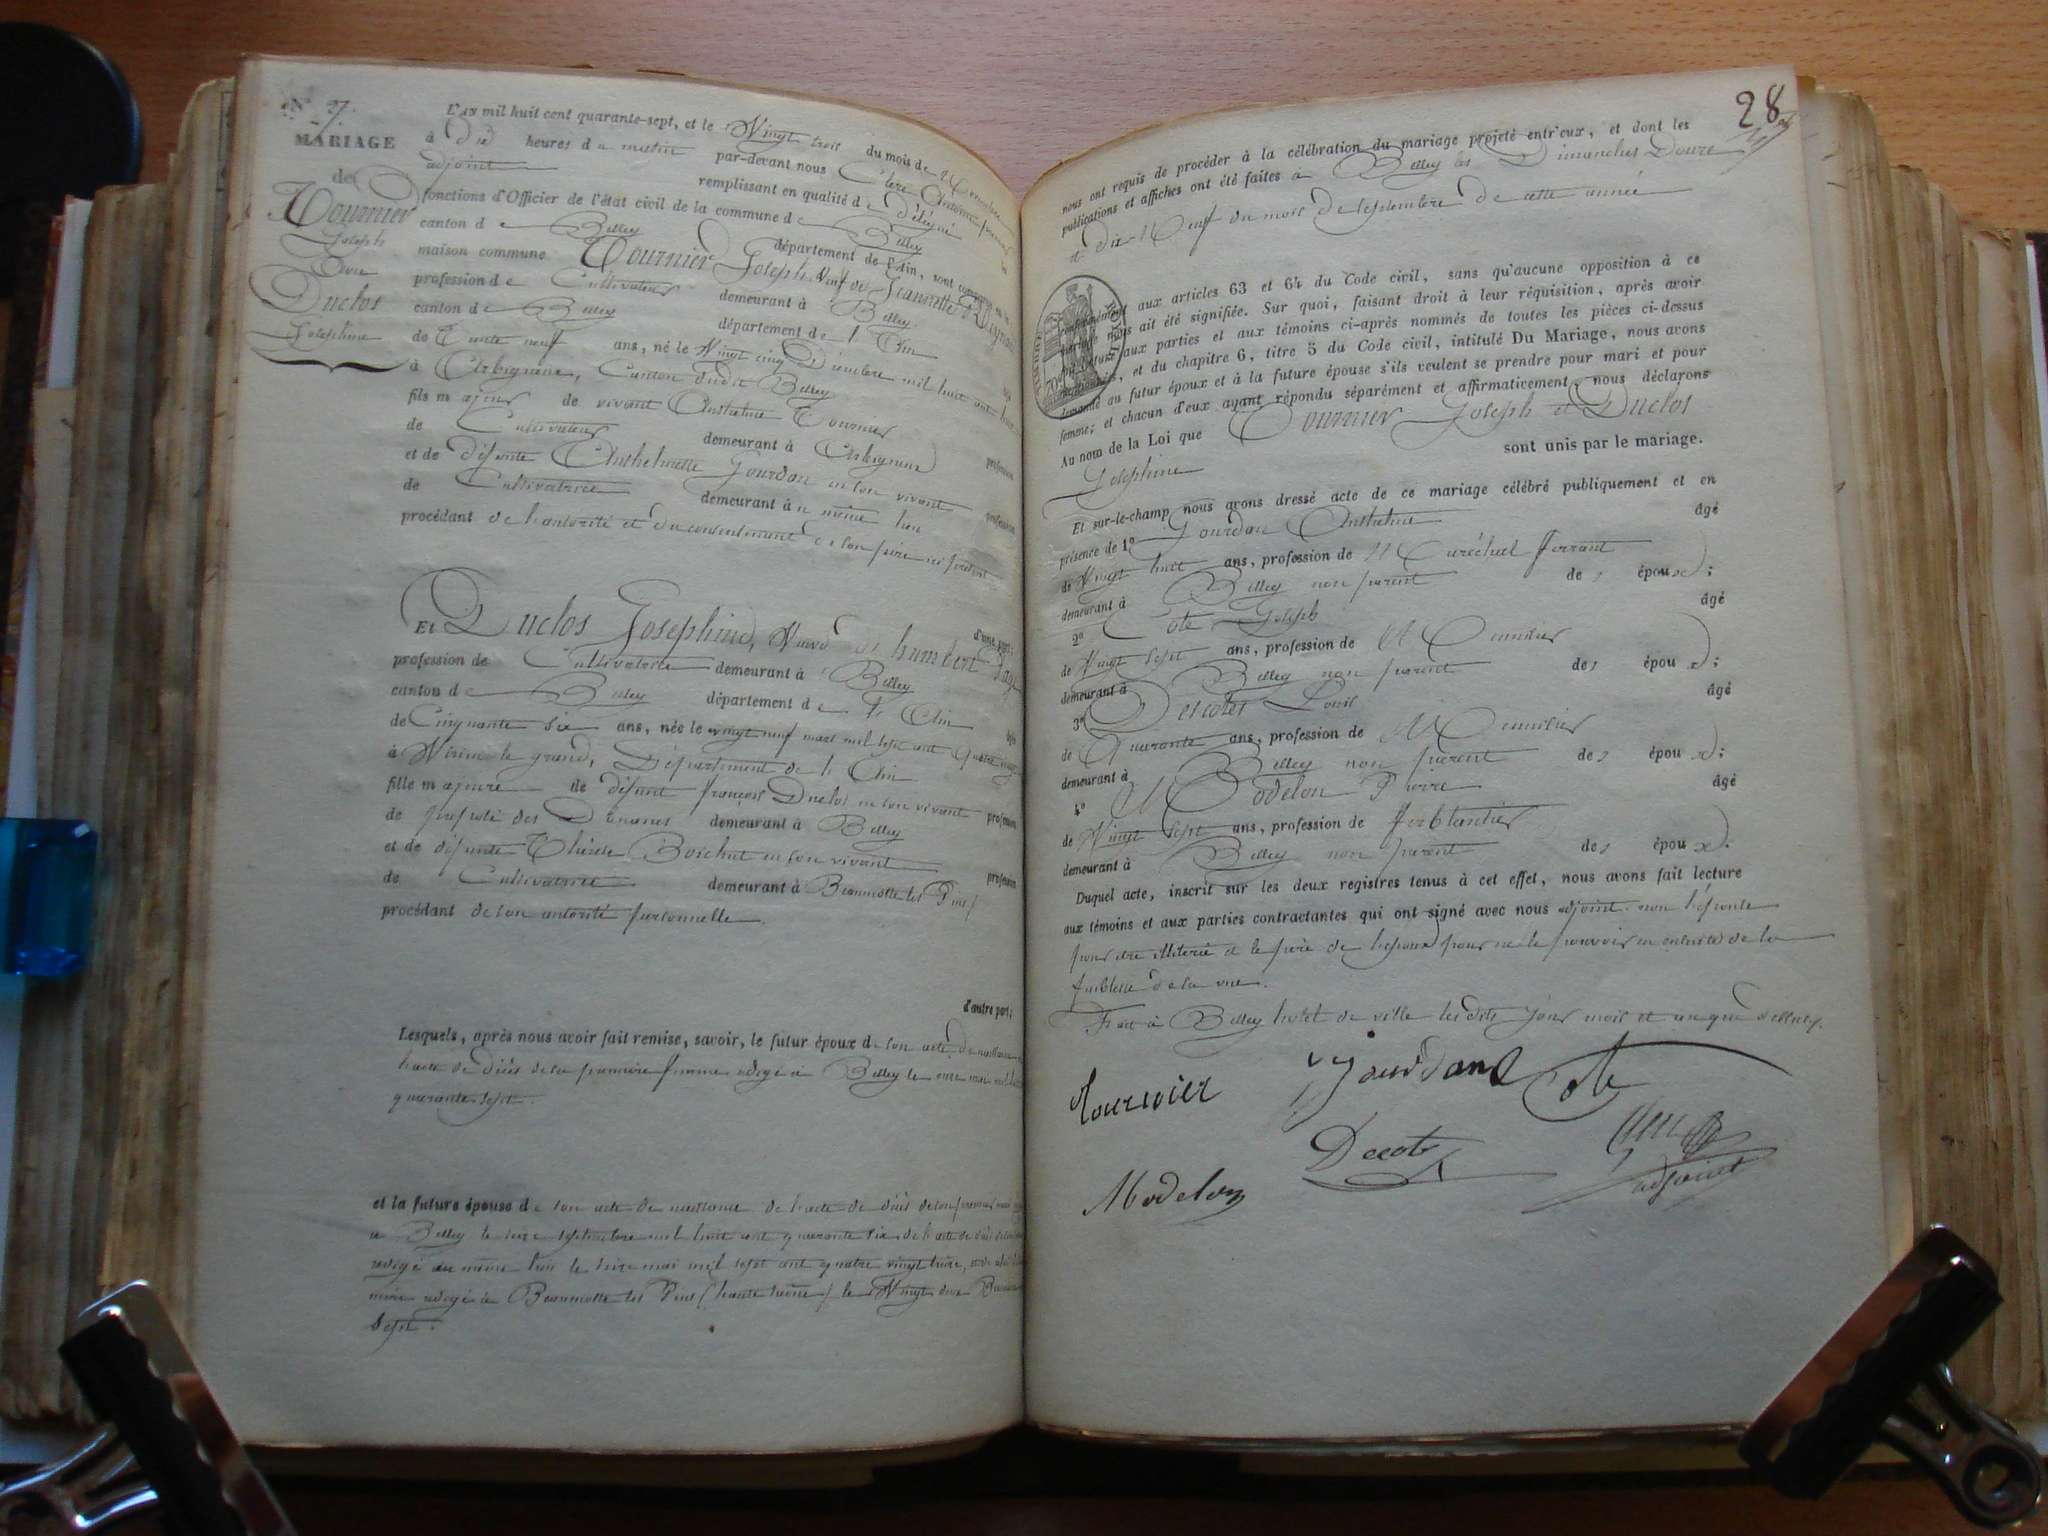 N° 27.
MARIAGE
de
Tournier
Joseph
Avec
Duclos
Josephine
L'AN mil huit cent quarante-sept, et le Vingt trois du mois de Novembre
à Dix heures du matin par-devant nous Clerc Antoine
adjoint remplissant en qualité de Délégué
fonctions d'Officier de l'état civil de la commune de Belley
canton de Belley département de l'Ain, sont comparus en la
maison commune Tournier Joseph Veuf de Jeannette
profession de Cultivateur demeurant à Belley
canton de Belley département de l'Ain
de Trente neuf ans, né le Vingt cinq Décembre mil huit cent
à Arbignieu, Canton dudit Belley
fils majeur de vivant Anthelme Tournier
de Cultivateur demeurant à Arbignieu profession
et de défunte Anthelmette Gourdan en son vivant
de Cultivatrice demeurant au même lieu profession
procédant de l'autorité et du consentement de son père ici présent
d'une part;
Et Duclos Josephine, Veuve de humbert
profession de Cultivatrice demeurant à Belley
canton de Belley département de l'Ain
de Cinquante six ans, née le vingt neuf mars mil sept cent quatre vingt
à Virieu le grand, Département de l'Ain
fille majeure de défunt françois Duclos en son vivant profession
de préposé des Douanes demeurant à Belley
et de défunte Thérèse Boichut en son vivant
de Cultivatrice demeurant à Beaumotte les Pins profession
procédant de son autorité personnelle.
d'autre part;
Lesquels, après nous avoir fait remise, savoir, le futur époux de son acte de naissance
l'acte de décès de sa première femme rédigé à Belley le onze mai mil
quarante sept.
et la future épouse de son acte de naissance de l'acte de décès de son premier mari
à Belley le seize septembre mil huit cent quarante six de l'acte de décès de son
rédigé au même lieu le treize mai mil sept cent quatre vingt treize, et de celui de
mère rédigé à Beaumotte les Pins (haute Saône) le Vingt deux
Sept.
28
nous ont requis de procéder à la célébration du mariage projeté entr'eux, et dont les
publications et affiches ont été faites à Belley les Dimanches Douze
et dix-Neuf du mois de Septembre de cette année
conformément aux articles 63 et 64 du Code civil, sans qu'aucune opposition à ce
mariage nous ait été signifiée. Sur quoi, faisant droit à leur réquisition, après avoir
fait lecture aux parties et aux témoins ci-après nommés de toutes les pièces ci-dessus
mentionnées, et du chapitre 6, titre 5 du Code civil, intitulé Du Mariage, nous avons
demandé au futur époux et à la future épouse s'ils veulent se prendre pour mari et pour
femme; et chacun d'eux ayant répondu séparément et affirmativement, nous déclarons
Au nom de la Loi que Tournier Joseph et Duclos
Josephine sont unis par le mariage.
Et sur-le-champ nous avons dressé acte de ce mariage célébré publiquement et en
présence de 1° Gourdan Anthelme âgé
de Vingt huit ans, profession de Maréchal ferrant
demeurant à Belley non parent des époux;
2° Cote Joseph âgé
de Vingt Sept ans, profession de Menuisier
demeurant à Belley non parent des époux;
3° Descotes Louis âgé
de Quarante ans, profession de Menuisier
demeurant à Belley non parent des époux;
4° Modelon Pierre âgé
de Vingt Sept ans, profession de ferblantier
demeurant à Belley non parent des époux.
Duquel acte, inscrit sur les deux registres tenus à cet effet, nous avons fait lecture
aux témoins et aux parties contractantes qui ont signé avec nous adjoint non l'épouse
pour être illitérée et le père de l'époux pour ne le pouvoir en ensuite de la
faiblesse de la vue.
Fait à Belley hotel de ville les dits jour mois et an que dessus.
Tournier Jourdand Cote
Modelon Decote Clerc
adjoint